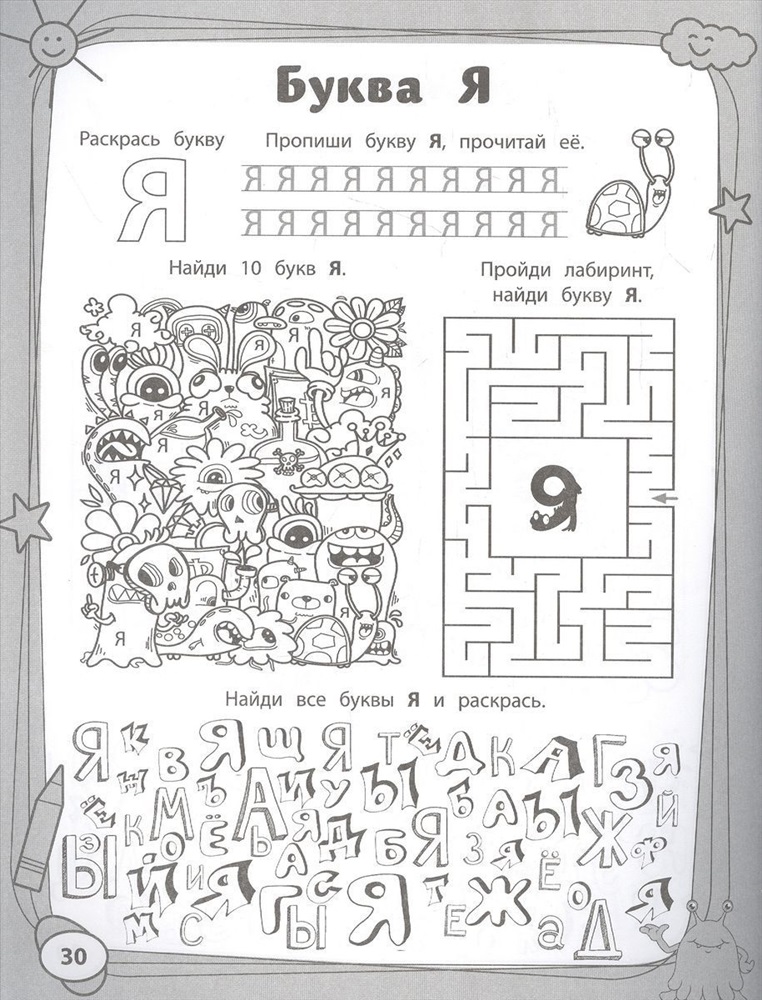 Буква Я
Раскрась букву
Пропиши букву Я, прочитай её.
Я
Я Я Я Я Я Я Я Я Я Я
Я Я Я Я Я Я Я Я Я Я
Найди 10 букв Я.
Пройди лабиринт,
найди букву Я.
Я
Я
Я
Я
Я
Я
Я
Я
Я
Я
Найди все буквы Я и раскрась.
Я К В Я Щ Я Т Ё Д К А Г Я
Н Ъ И У Ы Б А Ы З Й
Ё К М О Ё А Ь Я Д Б Я З Я Ж Ф
З Ы Й И Я А Г С Ы Я Т Ж Ё О Я
М С Е а Д
30